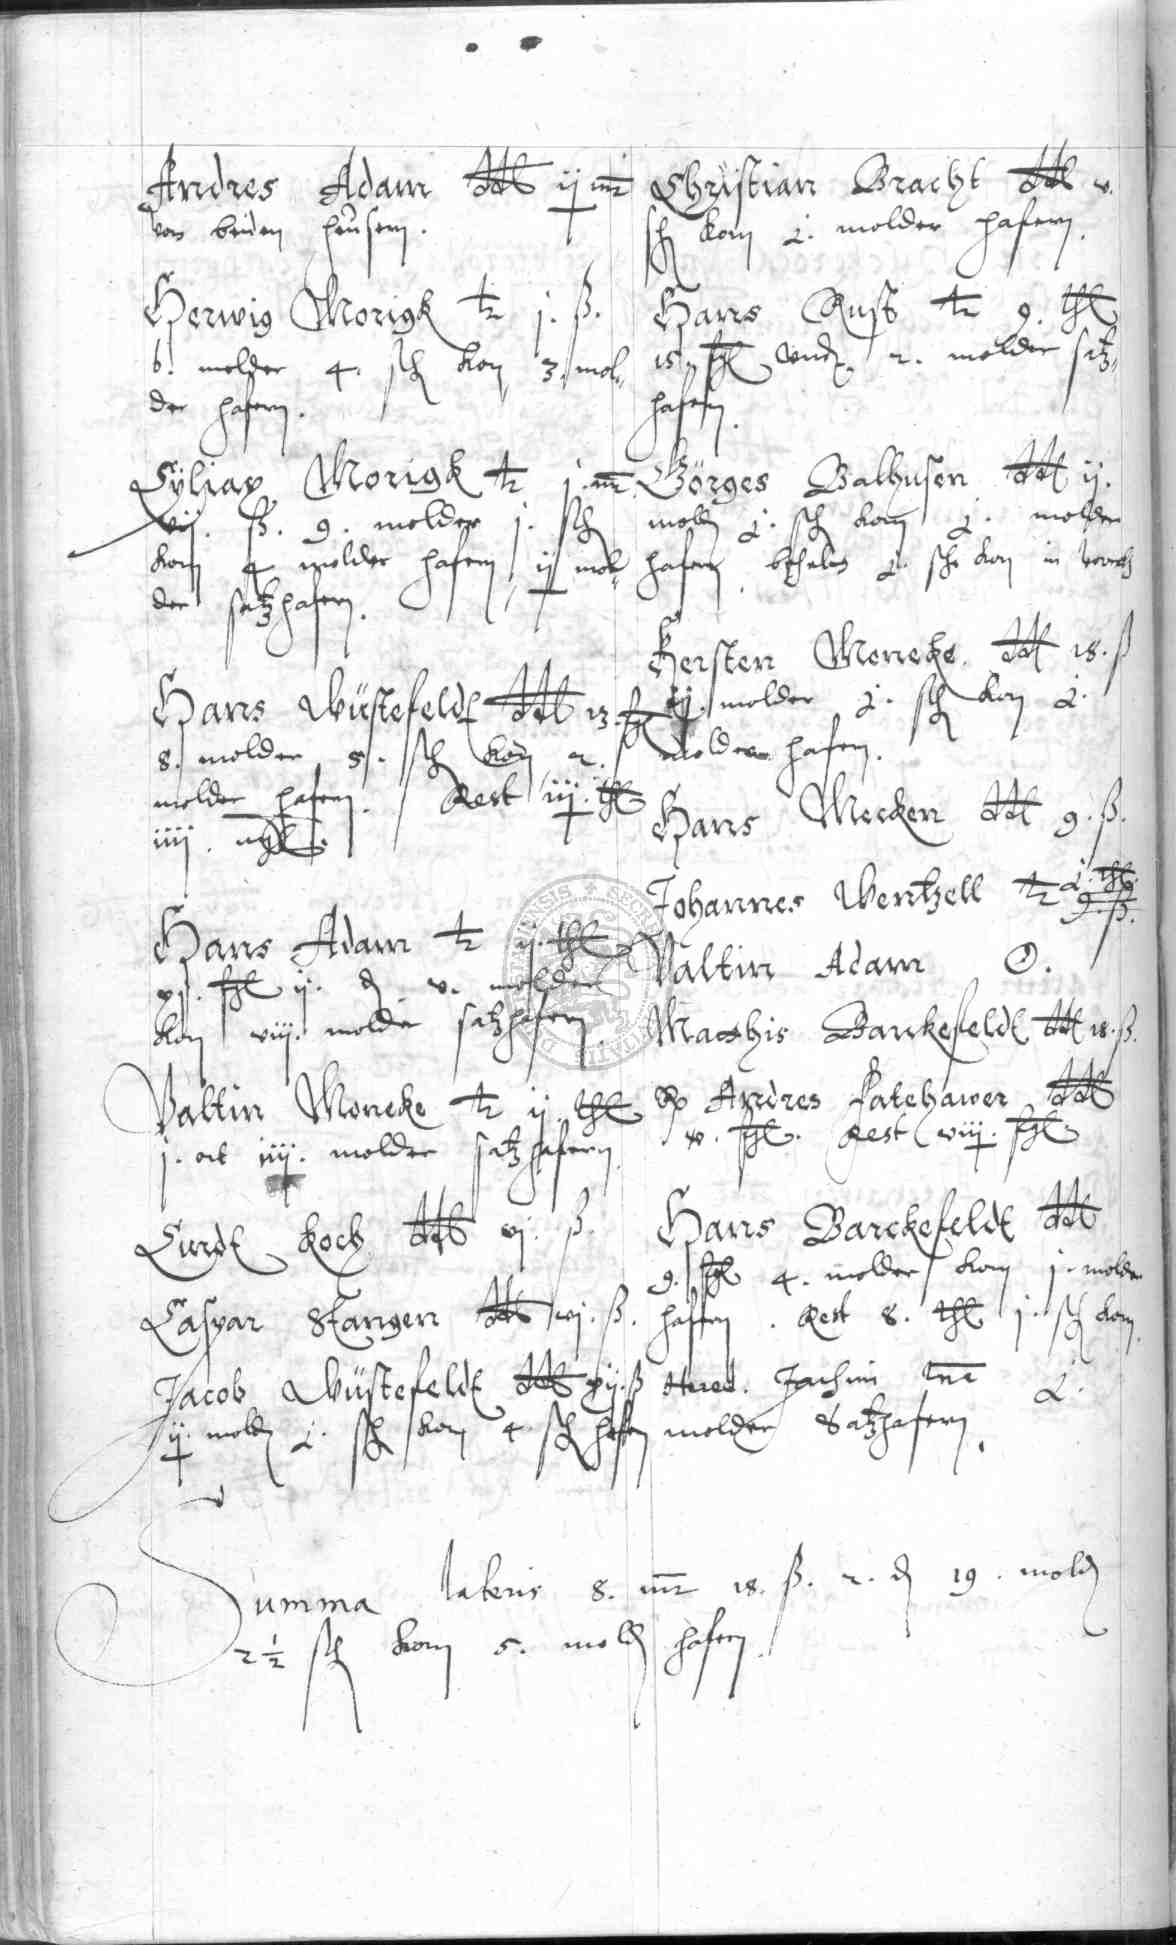 Andres Adam ddt ij mr
von beiden heusern.
Herwig Morigk tz j. ß.
6. molder 4. sch korn 3. mol-
der hafern.
Cyliax Morigk tz j. mr
vij. ß. 9. molder j. sch
korn 4 molder hafern ij mol-
der satzhafern.
Hans Wüstefeldt ddt 13.
8. molder 5. sch korn 2.
molder hafern. Rest iij. thl
iiij.
Hans Adam tz ij. thl
xj. ij. d v. molder
korn viij. molder satzhafern.
Valtin Moneke tz ij thl
j. ort iiij. molder satzhafern.
Curdt Koch ddt vj. ß.
Caspar Stangen ddt vj. ß.
Jacob Wüstefeldt ddt xij. ß
ij. mold j. sch korn 4. sch hafern
Christian Bracht ddt v.
sch korn j. molder hafern.
Hans Rust tz 9. thl
15. vnd 2. molder satz-
hafern.
Görges Balhusen ddt ij.
mold j. sch korn j. molder
hafern, j. sch korn in
Kersten Moneke ddt 18. ß
ij. molder j. sch korn j.
molder hafern.
Hans Mecken ddt 9. ß.
Johannes Wentzell tz j. thl
9. ß.
Valtin Adam O.
Matthis Barckefeldt ddt 18. ß.
Andres Fatehawer ddt
v. Rest viij.
Hans Barckefeldt ddt
9. 4. molder korn j. molder
hafern. Rest 8. thl j. sch korn.
Jachim j.
molder Satzhafern.
Summa lateris 8. mr 18. ß. 2. d 19. mold
2 1/2 sch korn 5. mold hafern.